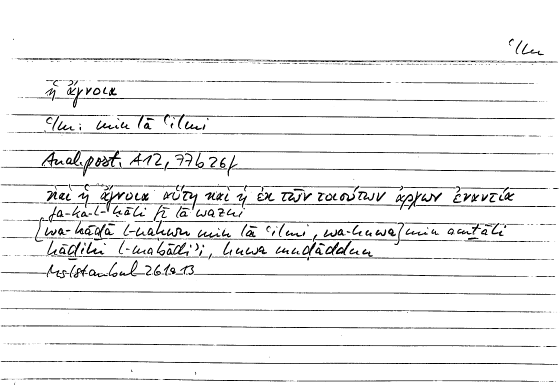 ʿlm
ἡ ἄγνοια
ʿlm: min lā ʿilmi
Anal. post. A12, 77b26f
καὶ ἡ ἄγνοια αὕτη καὶ ἡ ἐκ τῶν τοιούτων ἀρχῶν ἐναντία
fa-ka-l-ḥāli fī lā
[wa-hāḏā l-naḥwu min lā ʿilmi, wa-huwa] min amṯāli
hāḏihi l-mabādiʾi, huwa muḍāddun
Ms Istanbul 261a13